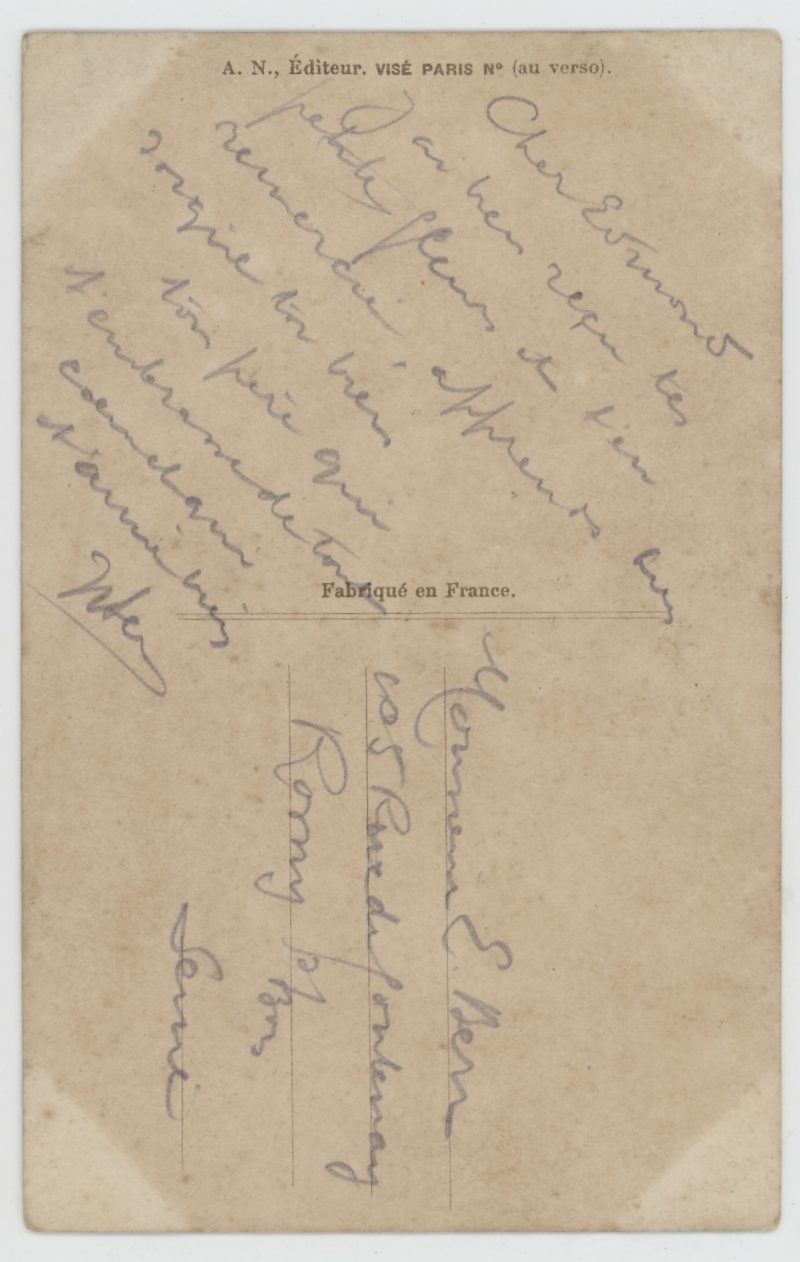 A. N., Éditeur. VISÉ PARIS Nº (au verso).
Cher Edmond
J'ai bien reçu tes
petites fleurs et t'en
remercie, apprends bien
soigne toi bien
ton père qui
t'embrasse de tout
coeur et qui
t'aime bien
Fabriqué en France.
Monsieur E.
105 Rue de Fontenay
Rosny s/
Bois
Seine